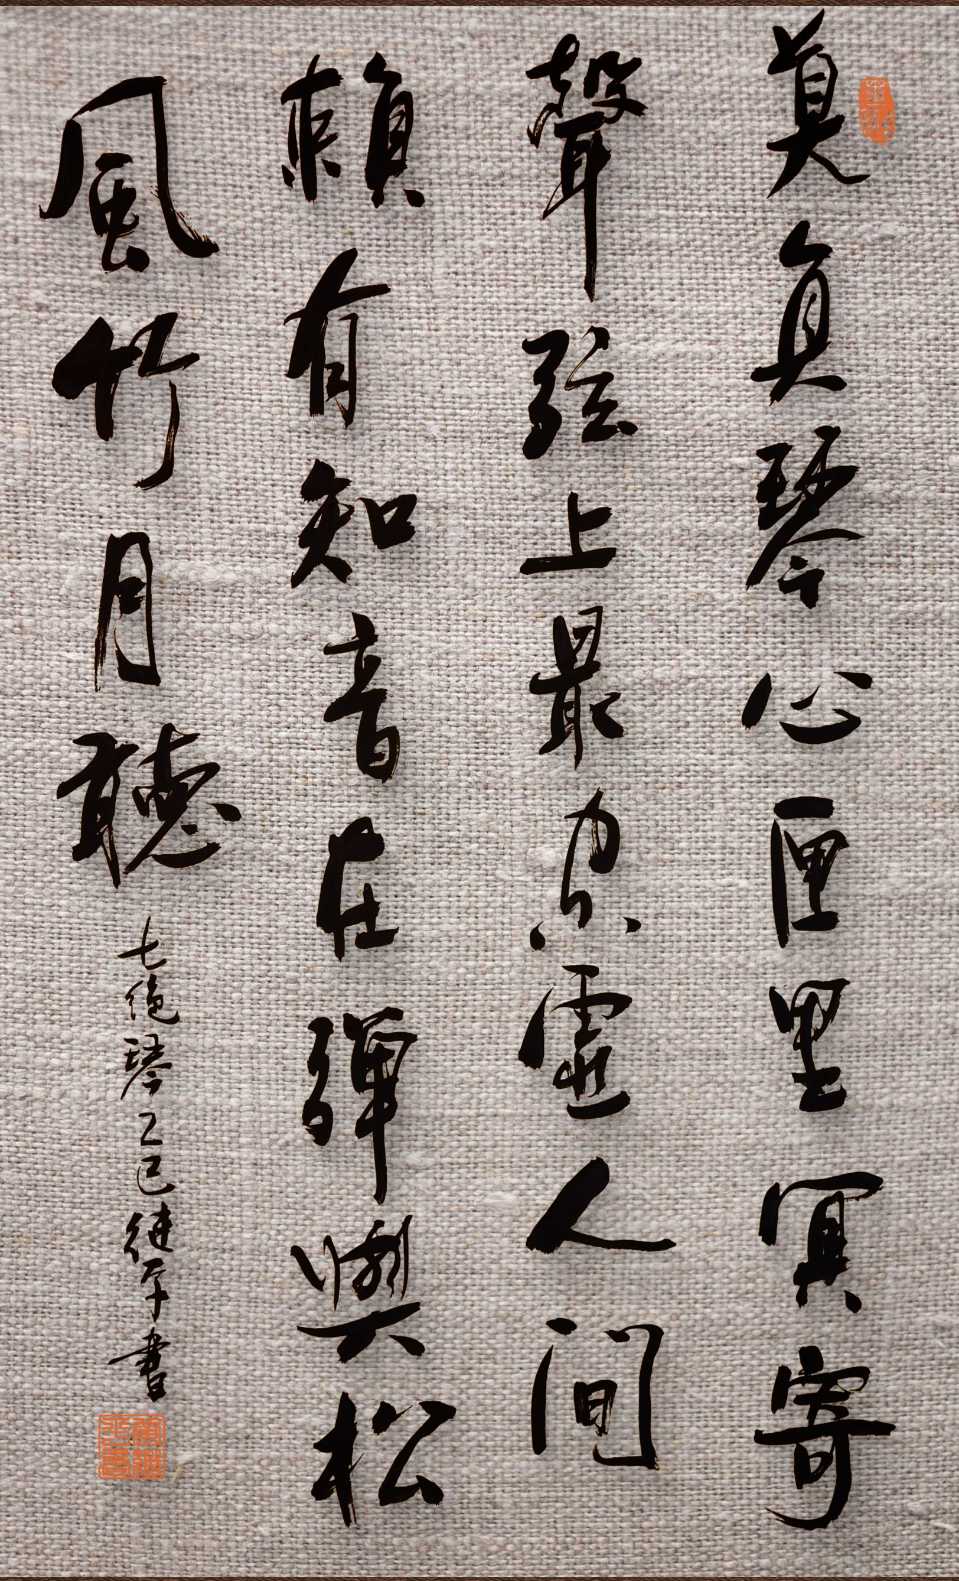 莫負琴心匣里冥寄
聲弦上最空靈人間
賴有知音在彈與松
風竹月聽
七绝琴乙巳書